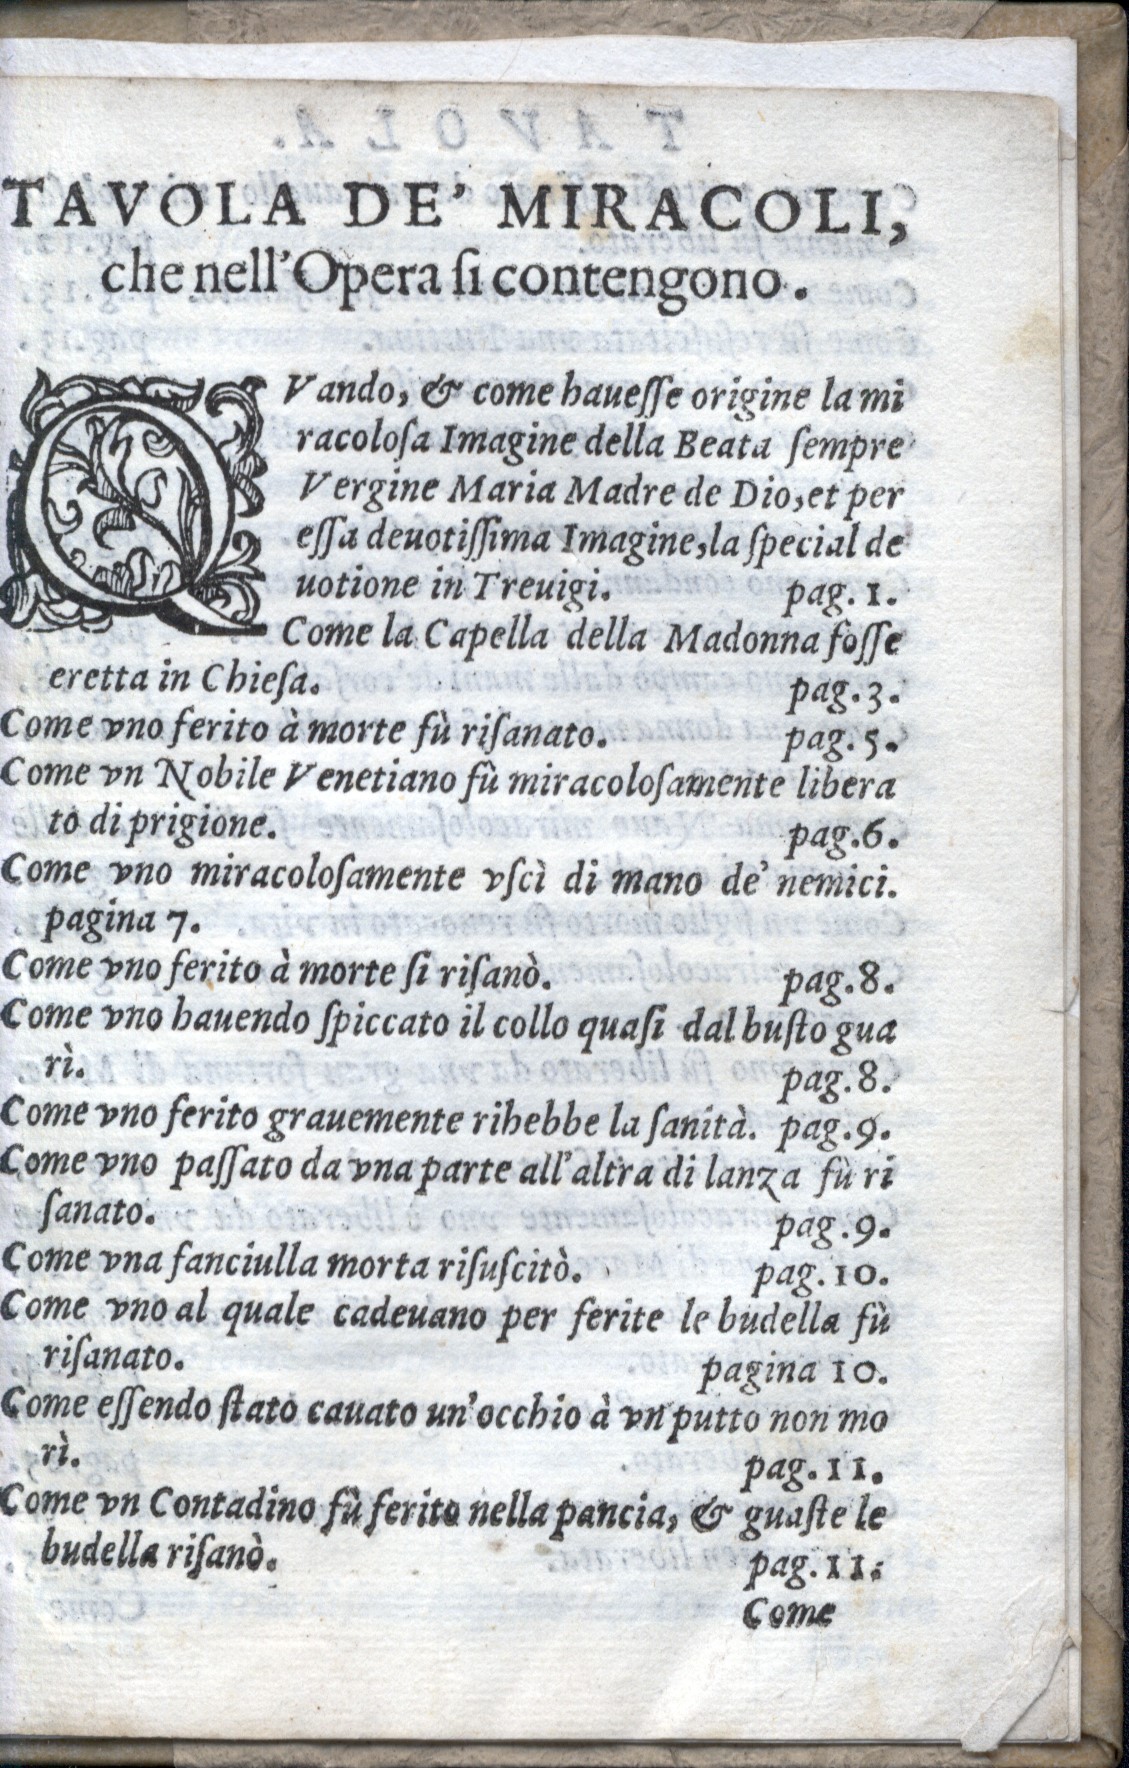 TAVOLA DE' MIRACOLI,
che nell'Opera ſi contengono.
QVando, & come haueſſe origine la mi
racoloſa Imagine della Beata ſempre
Vergine Maria Madre de Dio, et per
eſſa deuotiſſima Imagine, la ſpecial de
uotione in Treuigi. pag. 1.
Come la Capella della Madonna foſſe
eretta in Chieſa. pag. 3.
Come vno ferito à morte fù riſanato. pag. 5.
Come vn Nobile Venetiano fù miracoloſamente libera
to di prigione. pag. 6.
Come vno miracoloſamente vſcì di mano de' nemici.
pagina 7.
Come vno ferito à morte ſi riſanò. pag. 8.
Come vno hauendo ſpiccato il collo quaſi dal buſto gua
rì. pag. 8.
Come vno ferito grauemente rihebbe la ſanità. pag. 9.
Come vno paſſato da vna parte all'altra di lanza fù ri
ſanato. pag. 9.
Come vna fanciulla morta riſuſcitò. pag. 10.
Come vno al quale cadeuano per ferite le budella fù
riſanato. pagina 10.
Come eſſendo ſtato cauato un'occhio à vn putto non mo
rì. pag. 11.
Come vn Contadino fù ferito nella pancia, & guaſte le
budella riſanò. pag. 11.
Come